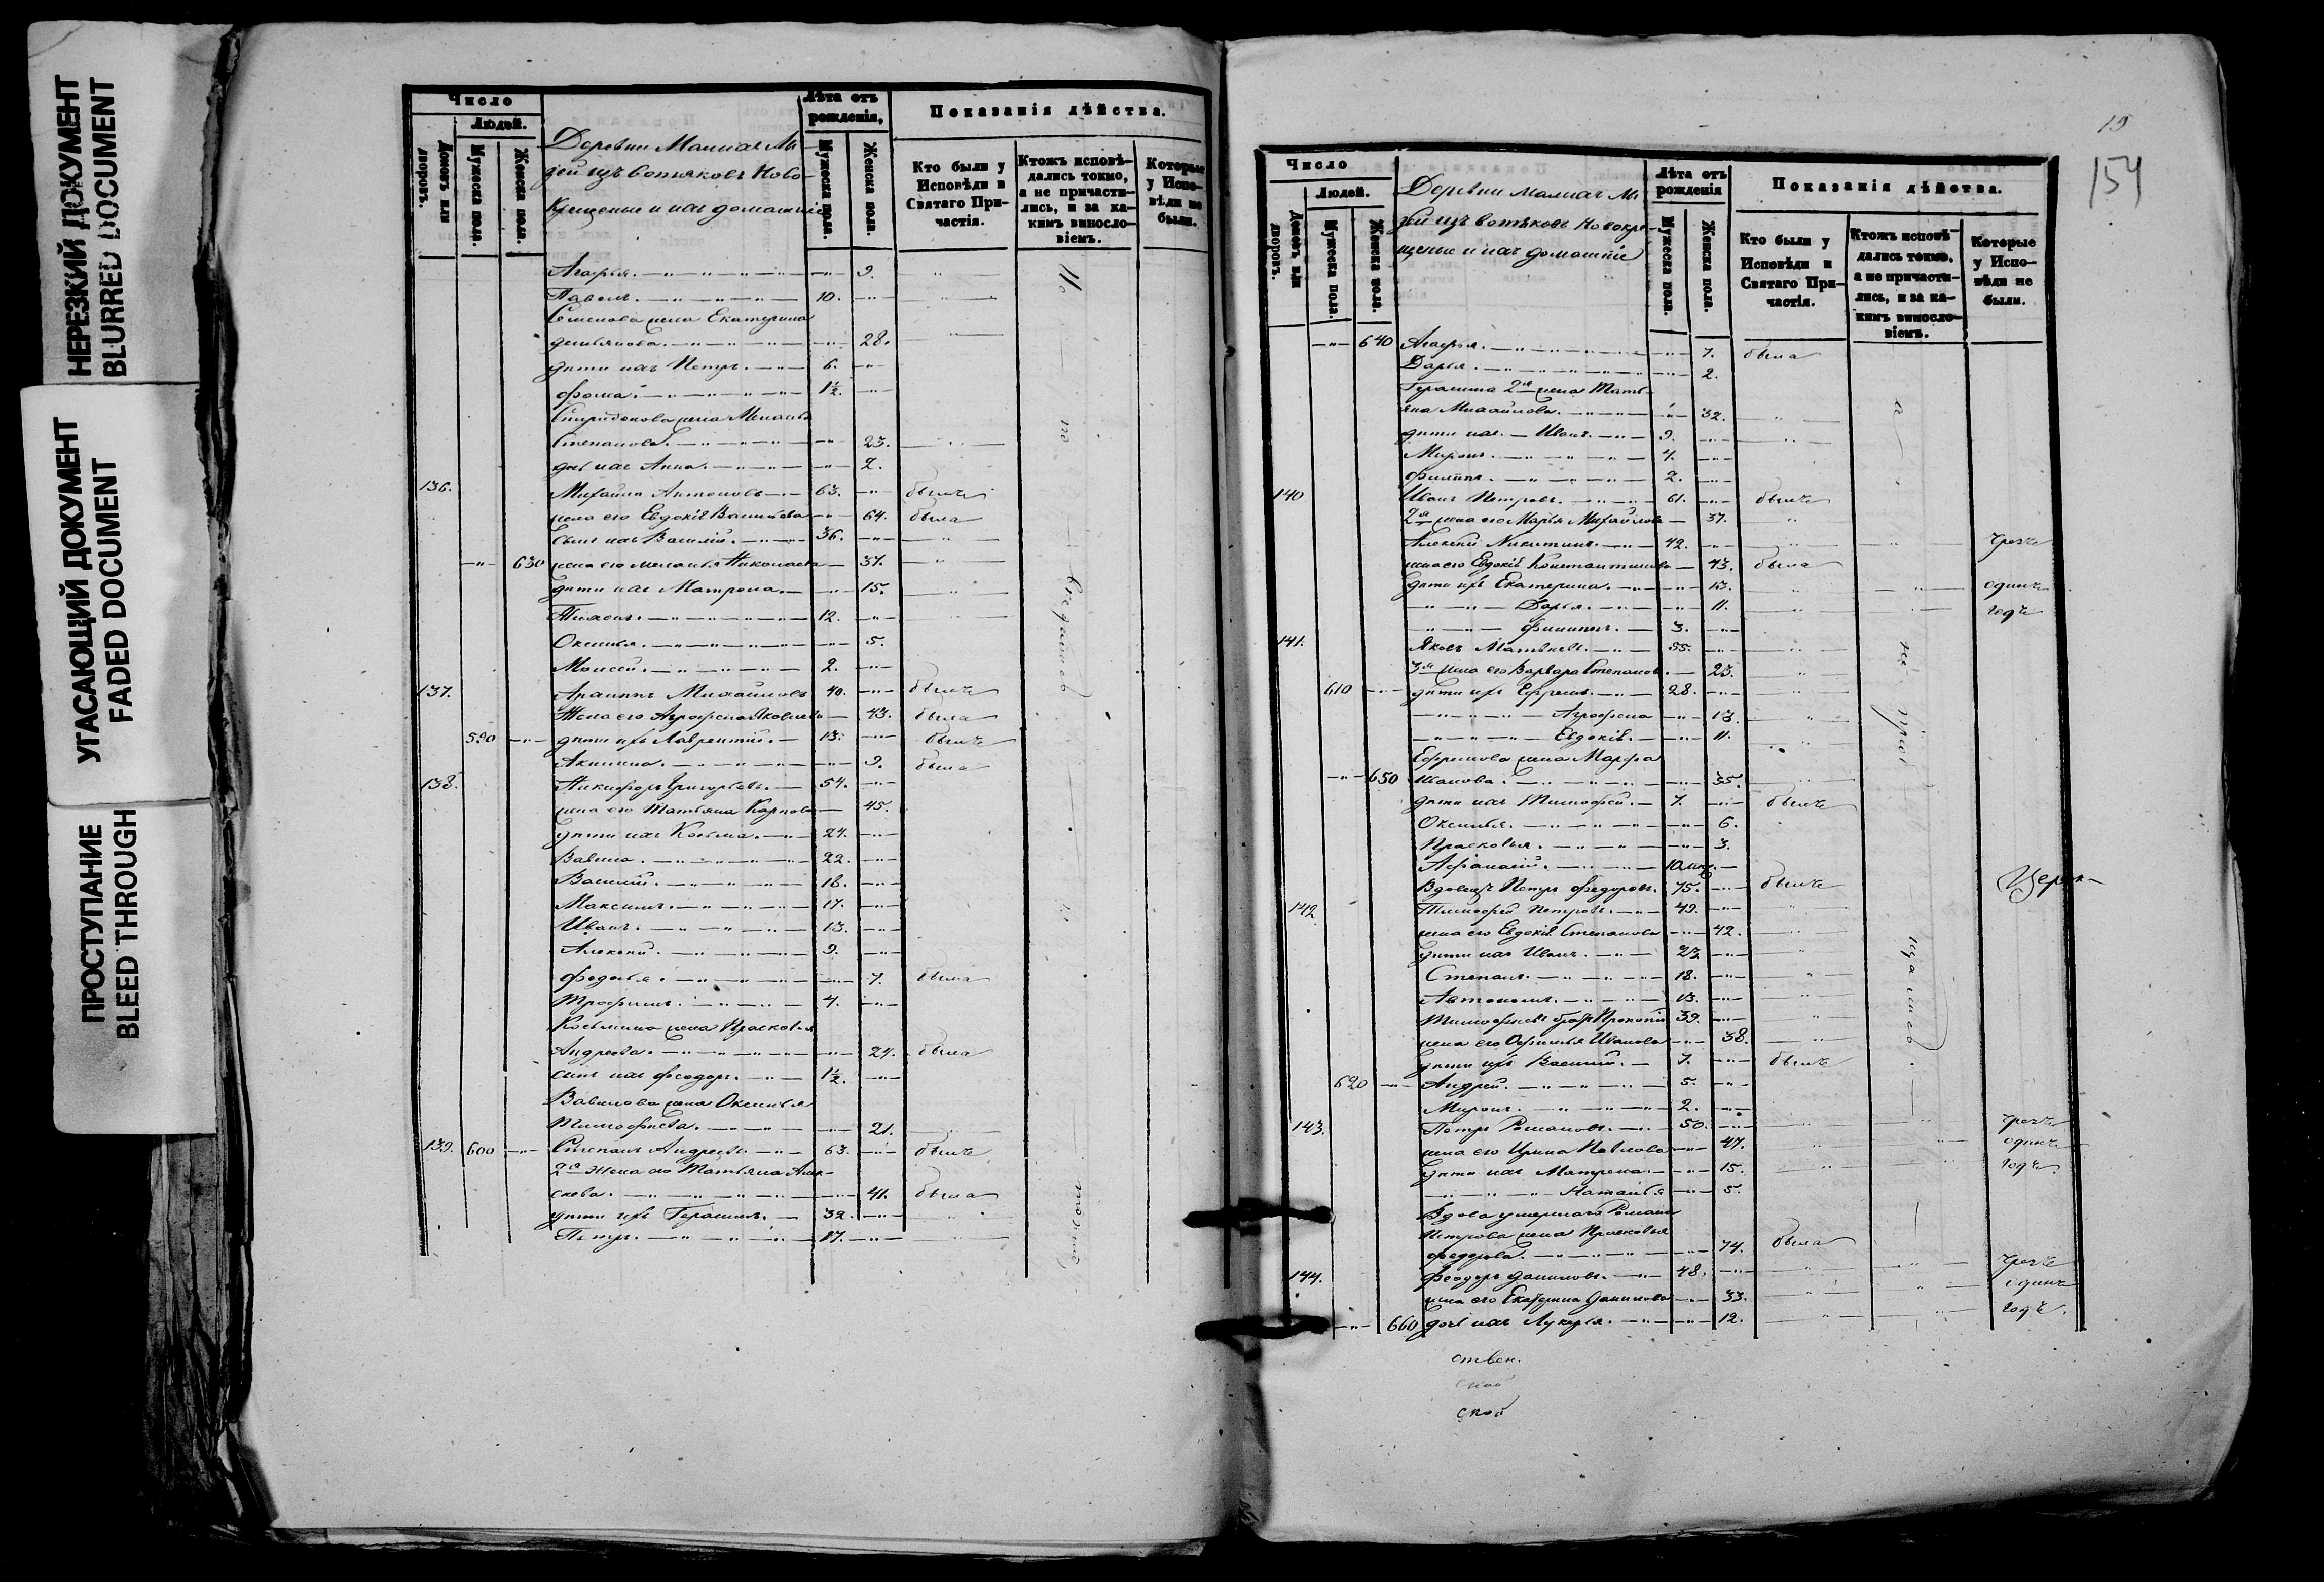 НЕРЕЗКИЙ ДОКУМЕНТ
BLURRED DOCUMENT
УГАСАЮЩИЙ ДОКУМЕНТ
FADED DOCUMENT
ПРОСТУПАНИЕ
BLEED THROUGH
Число
Людей.
Домовъ или дворовъ.
Мужеска пола.
Женска пола.
Деревни
изъ вотяковъ Ново-
крещеные и ихъ домашніе
Лѣта отъ рожденія,
Мужеска пола.
Женска пола.
Показанія дѣйства.
Кто были у Исповѣди и Святаго При-частія.
Ктожъ исповѣ-дались токмо, а не причасти-лись, и за ка-кимъ виносло-віемъ.
Которые у Испо-вѣди не были.
Агафья. 9.
Павелъ. 10.
Семенова жена Екатерина
Демьянова. 28.
дѣти ихъ Петръ. 6.
Фома. 1½.
Спиридонова жена Меланья
Степанова. 23.
дочь ихъ Анна. 2.
136. Михаилъ Антоновъ 63. былъ
жена его Евдокія Васильева 64. была
Сынъ ихъ Василій. 36.
630 жена его Меланья Николаева 37.
дѣти ихъ Матрона. 15.
12.
Оксинья. 5.
Моисей. 2.
137. Архиппъ Михайловъ 40. былъ
Жена его Агрофена Яковлева 43. была
590 дѣти ихъ Лаврентій. 13. былъ
Акилина. 9. была
138. Никифоръ Григорьевъ. 54.
жена его Татьяна Карпова 45.
дѣти ихъ Косьма. 24.
Вавила. 22.
Василій. 18.
Максимъ. 17.
Иванъ. 13.
Алексѣй. 9.
Федосья. 7. была
Трофимъ. 4.
Косьмина жена Прасковья
Андреева. 24. была
сынъ ихъ Феодоръ. 1½.
Вавилова жена Оксинья
Тимофеева. 21.
139. 600 Степанъ Андреевъ 63. былъ
2я Жена его Татьяна
41. была
дѣти ихъ Герасимъ. 32.
Петръ. 17.
19
154
Число
Людей.
Домовъ или дворовъ.
Мужеска пола.
Женска пола.
Деревни
изъ вотяковъ Новокре-
щеные и ихъ домашніе
Лѣта отъ рожденія
Мужеска пола.
Женска пола.
Показанія дѣйства.
Кто были у Исповѣди и Святаго При-частія.
Ктожъ исповѣ-дались токмо, а не причасти-лись, и за ка-кимъ виносло-віемъ.
Которые у Испо-вѣди не были.
640 Агафья. 7. была
Дарья. 2.
Герасима 2я жена Тать-
яна Михайлова. 32.
дѣти ихъ Иванъ. 9.
Миронъ. 4.
Филиппъ. 2.
140 Иванъ Петровъ. 61. былъ
2я жена его Марья Михайлова 37.
Алексѣй Никитинъ. 42. чрезъ
жена его Евдокія Константинова 43. была
дѣти ихъ Екатерина. 13. одинъ
Дарья. 11. годъ
Филиппъ. 3.
141. Яковъ Матвѣевъ. 55.
3я жена его Варвара Степанова. 23.
610 дѣти ихъ Ефремъ. 28.
Агрофена 13.
Евдокія. 11.
Ефремова жена Марфа
650 Иванова. 35.
дѣти ихъ Тимофей. 7. былъ
Оксинья. 6.
Прасковья. 3.
Афанасій. 10 мѣс.
Вдовецъ Петръ Федоровъ. 75. былъ
142 Тимофей Петровъ. 49.
жена его Евдокія Степанова 42.
дѣти ихъ Иванъ. 23.
Степанъ. 18.
Автономъ. 13.
Тимофеевъ братъ Прокопій 39.
жена его Иванова 38.
дѣти ихъ Василій. 7. былъ
620 Андрей. 5.
Миронъ. 2.
143. Петръ Романовъ. 50. чрезъ
жена его Ирина Павлова 47. одинъ
дѣти ихъ Матрена. 15. годъ
Наталья 5.
Вдова умершаго Романа
Петрова жена Прасковья
Федорова. 74. была
144. Феодоръ Даниловъ. 48. чрезъ
жена его Екатерина Данилова 33. одинъ
660 дочь ихъ Лукерья. 12. годъ.
Церк-
ствен.
ской